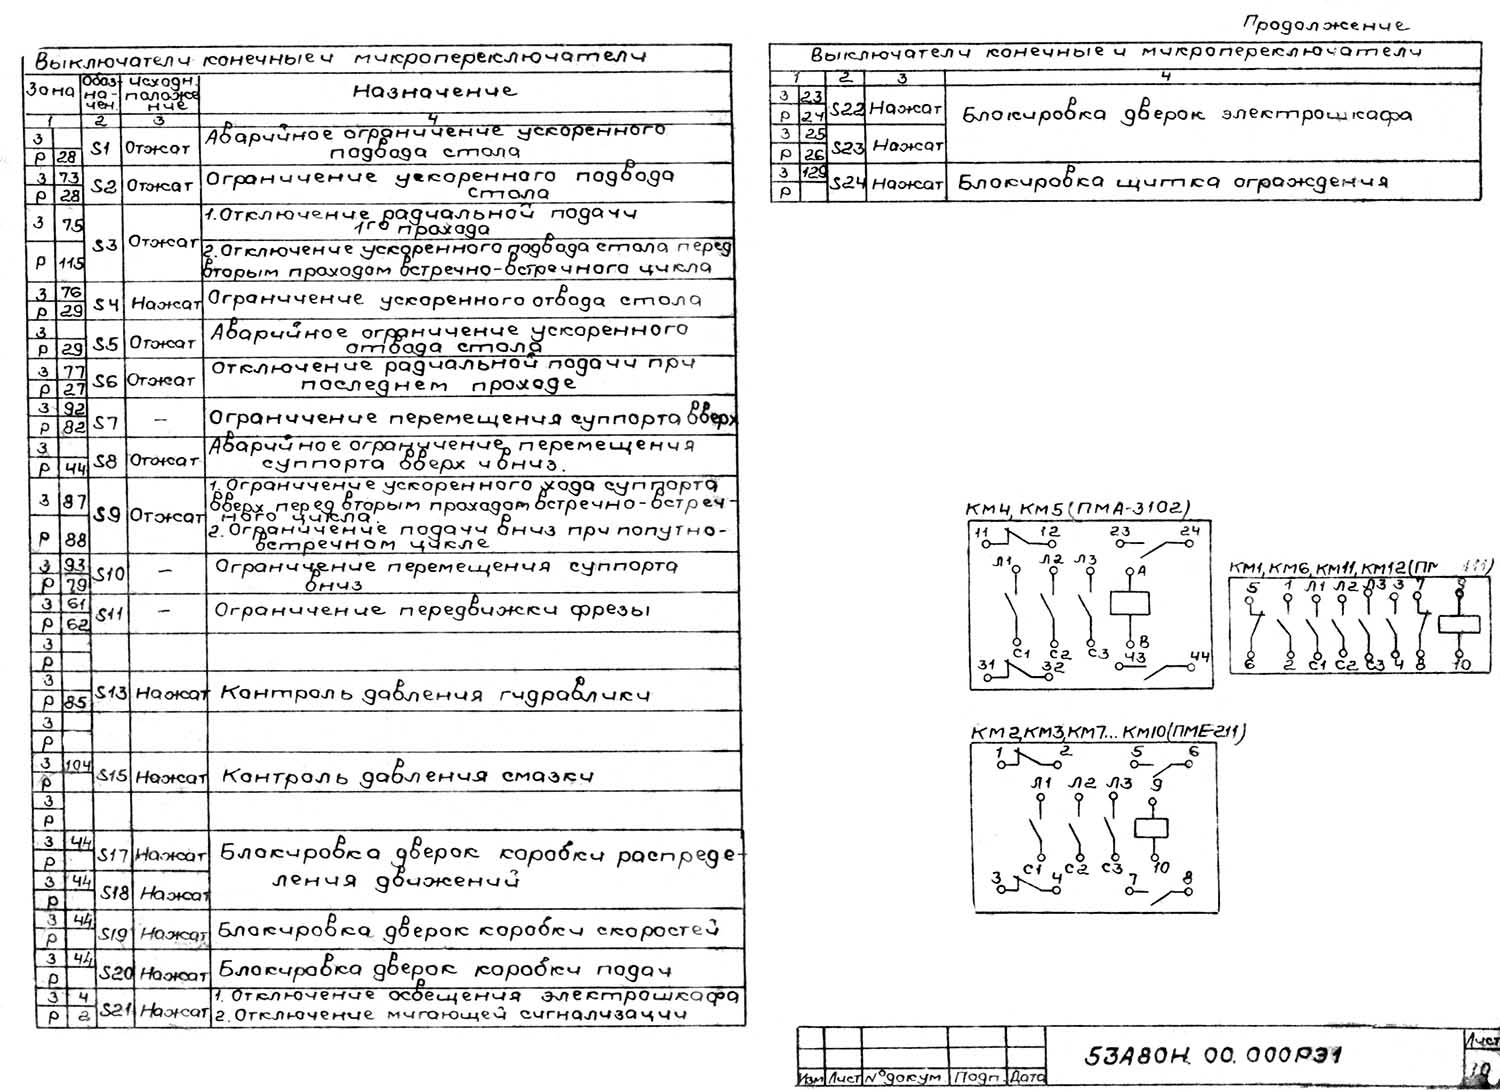 Продолжение
Выключатели конечные и микропереключатели
Зона
Обоз-
на-
чен.
исходн.
положе
ние
Назначение
1 2 3 4
З
Р 28
S1 Отжат
Аварийное ограничение ускоренного
подвода стола
З 73
Р 28
S2 Отжат
Ограничение ускоренного подвода
стола
З 75
Р 115
S3 Отжат
1. Отключение радиальной подачи
1го прохода
2. Отключение ускоренного подвода стола перед
вторым проходом встречно-встречного цикла
З 76
Р 29
S4 Нажат
Ограничение ускоренного отвода стола
З
Р 29
S5 Отжат
Аварийное ограничение ускоренного
отвода стола
З 77
Р 27
S6 Отжат
Отключение радиальной подачи при
последнем проходе
З 92
Р 82
S7 –
Ограничение перемещения суппорта вверх
З
Р 44
S8 Отжат
Аварийное ограничение перемещения
суппорта вверх и вниз.
З 87
Р 88
S9 Отжат
1. Ограничение ускоренного хода суппорта
вверх перед вторым проходом встречно-встреч-
ного цикла.
2. Ограничение подачи вниз при попутно-
встречном цикле
З 93
Р 79
S10 –
Ограничение перемещения суппорта
вниз
З 61
Р 62
S11 –
Ограничение передвижки фрезы
З
Р
З
Р 85
S13 Нажат
Контроль давления гидравлики
З
Р
З 104
Р
S15 Нажат
Контроль давления смазки
З
Р
З 44
Р
S17 Нажат
Блокировка дверок коробки распреде-
ления движений
З 44
Р
S18 Нажат
З 44
Р
S19 Нажат
Блокировка дверок коробки скоростей
З 44
Р
S20 Нажат
Блокировка дверок коробки подач
З 4
Р 2
S21 Нажат
1. Отключение освещения электрошкафа
2. Отключение мигающей сигнализации
Выключатели конечные и микропереключатели
1 2 3 4
З 23
Р 24
S22 Нажат
Блокировка дверок электрошкафа
З 25
Р 26
S23 Нажат
З 129
Р
S24 Нажат
Блокировка щитка ограждения
КМ4, КМ5 (ПМА-3102)
11 12 23 24
Л1 Л2 Л3 А
С1 С2 С3 В
31 32 43 44
КМ1, КМ6, КМ11, КМ12 (ПМ
5 1 Л1 Л2 Л3 3 7 9
6 2 С1 С2 С3 4 8 10
КМ2, КМ3, КМ7... КМ10 (ПМЕ-211)
1 2 5 6
Л1 Л2 Л3 9
С1 С2 С3 10
3 4 7 8
53А80Н. 00. 000РЭ1
Лист
Изм Лист N°докум Подп. Дата